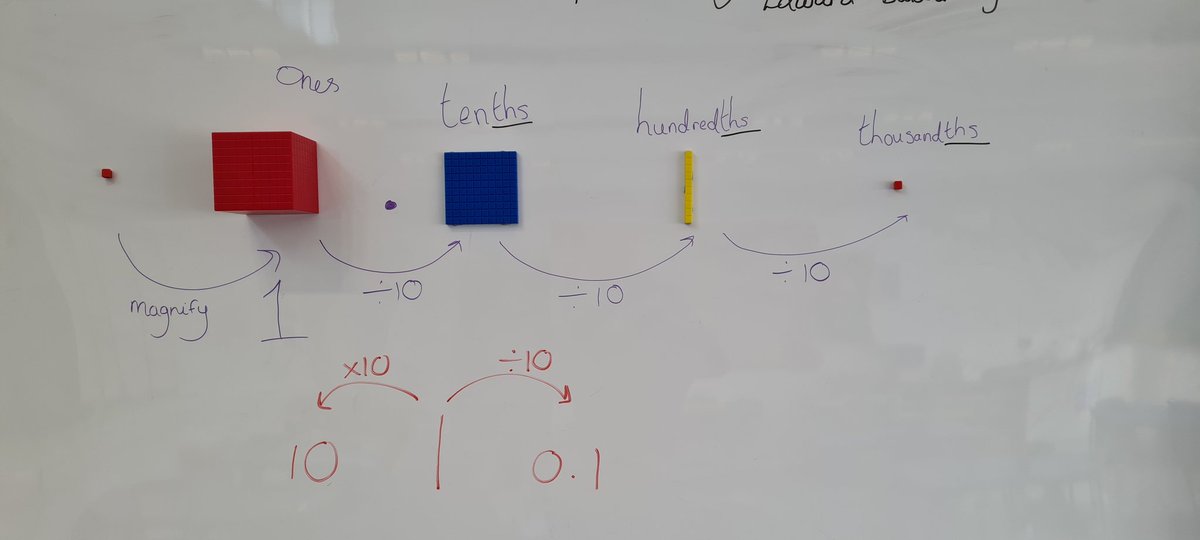 Ones
tenths
hundredths
thousandths
magnify
1
÷10
÷10
÷10
x10
÷10
10
1
0.1